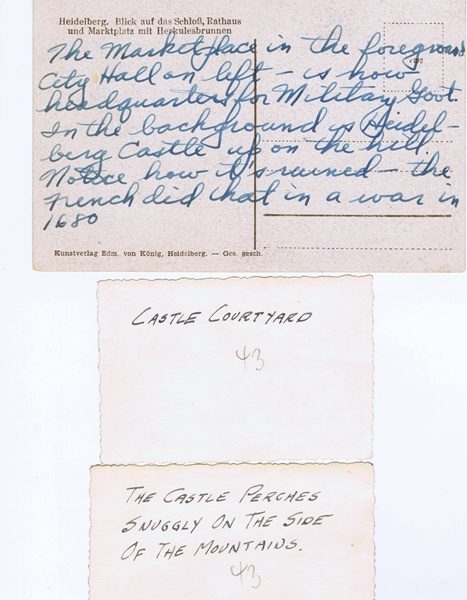 Heidelberg. Blick auf das Schloß, Rathaus
und Marktplatz mit Herkulesbrunnen
The Marketplace in the foreground
City Hall on left – is now
headquarters for Military Govt.
In the background is Heidel-
berg Castle up on the hill.
Notice how it's ruined – the
French did that in a war in
1680
Kunstverlag Edm. von König, Heidelberg. — Ges. gesch.
CASTLE COURTYARD
43
THE CASTLE PERCHES
SNUGGLY ON THE SIDE
OF THE MOUNTAINS.
43